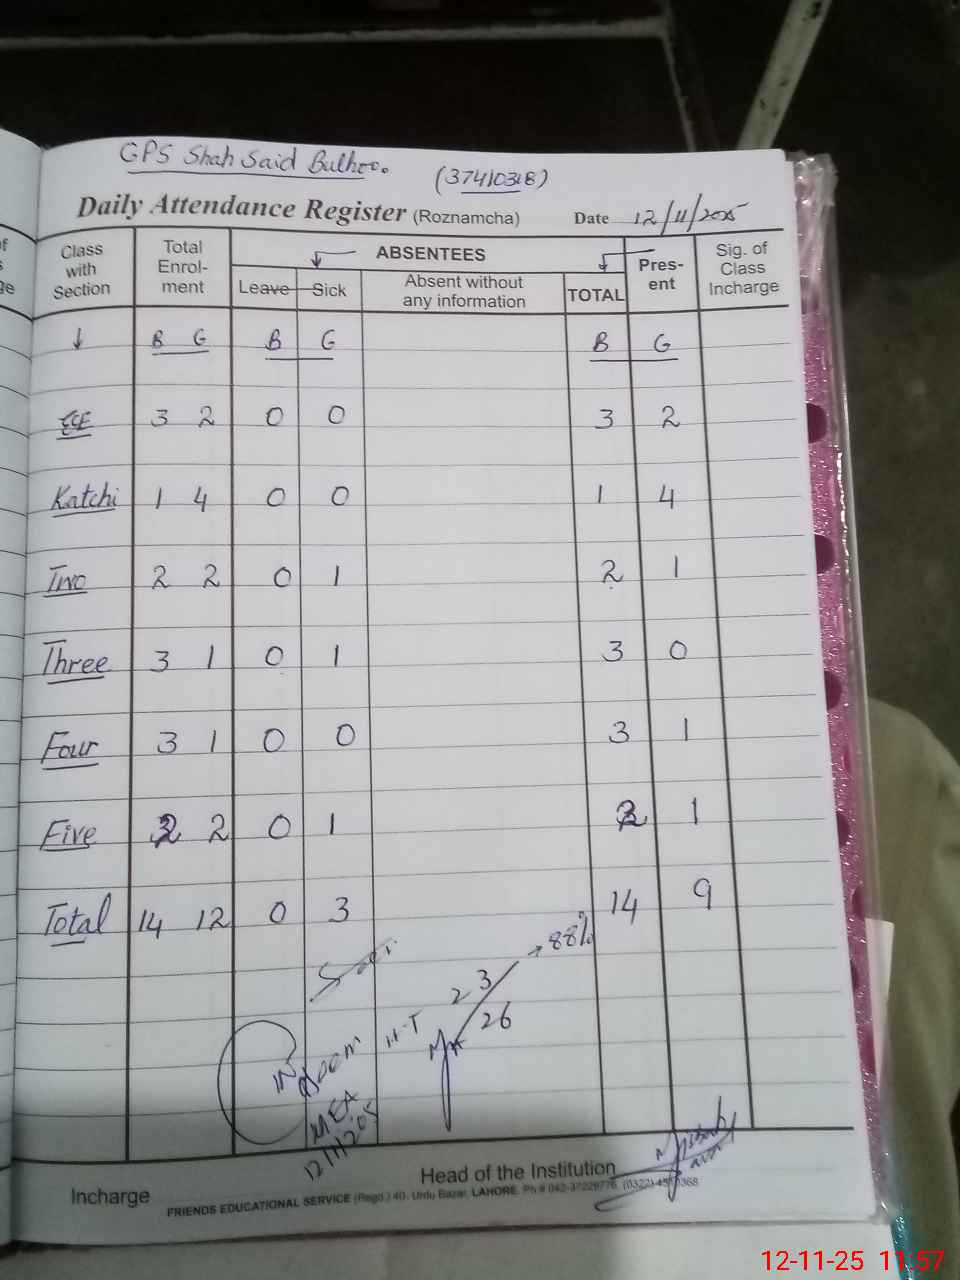 GPS Shah Said Bulhoo.
(37410318)
Daily Attendance Register (Roznamcha) Date 12/11/2025
Class with Section Total Enrol-ment ABSENTEES Pres-ent Sig. of Class Incharge
Leave Sick Absent without any information TOTAL
↓ B G B G B G
ECE 3 2 0 0 3 2
Katchi 1 4 0 0 1 4
Two 2 2 0 1 2 1
Three 3 1 0 1 3 0
Four 3 1 0 0 3 1
Five 2 2 0 1 2 1
Total 14 12 0 3 14 9
23/26 → 88%
MEA
Head of the Institution
Incharge
FRIENDS EDUCATIONAL SERVICE (Regd.) 40, Urdu Bazar, LAHORE. Ph # 042-37229776,
12-11-25 11:57